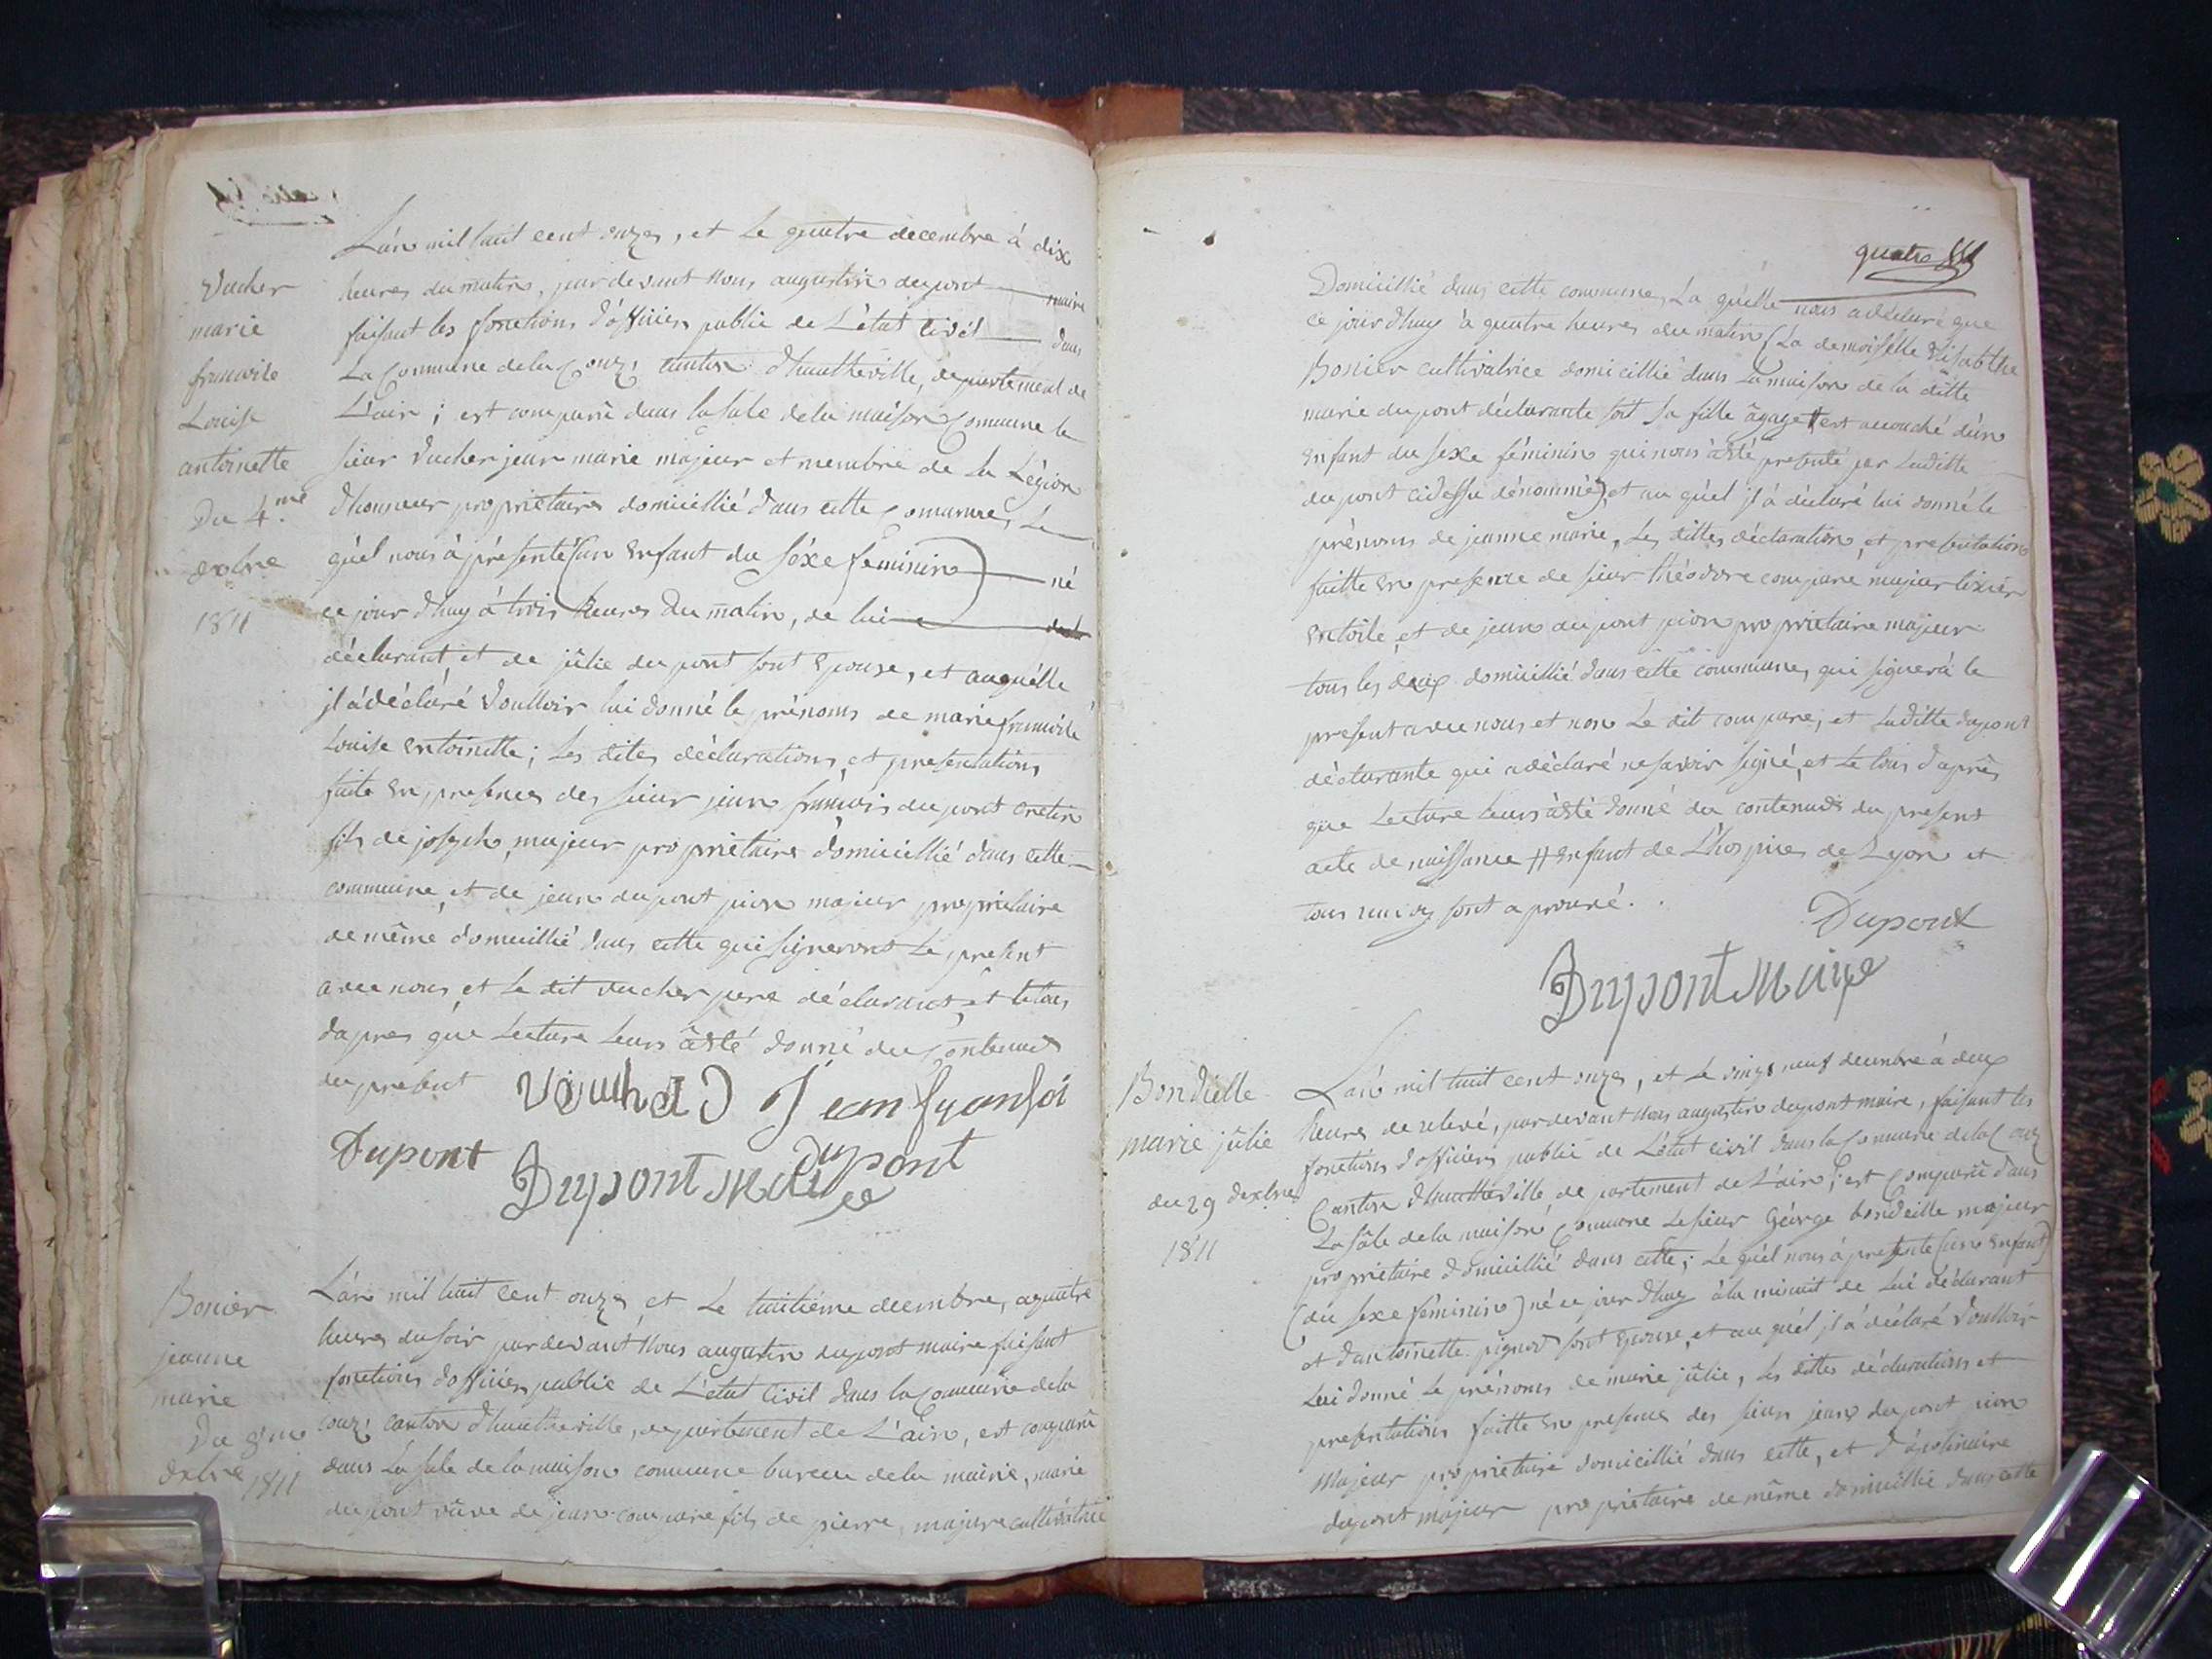 L'an mil huit cent onze, et le quatre decembre à dix
Vucher
marie
francoise
Louise
antoinette
Du 4.me
dexbre
1811
heures du matin, pardevant nous augustin dupont maire
faisant les fonctions d'officier public de L'état Civil dans
La Commune de la Couz, canton d'hauteville, departement de
L'ain; est comparû dans la sale de la maison Commune le
sieur Vucher jean marie majeur et membre de La Légion
d'honneur proprietaire domicillié dans cette Commune, Le
quel nous à présenté (un enfant du séxe feminin) né
ce jour d'huy à trois heures du matin, de lui
déclarant et de jûlie dupont sont Epouse, et auquélle
jl à déclaré Voulloir lui donné le prénoms de marie francoise
Louise entoinette; Les dites déclarations, et presentations
faite en presence des sieur jean francois dupont cretin
fils de joseph, majeur proprietaire domicillié dans cette
commune, et de jean dupont pion majeur proprietaire
de même domicillié dans cette qui signeront Le present
avec nous, et Le dit vucher pere déclarant, et le tous
dapres que Lecture Leurs àété donné du Contenues
du present
Jean fransoi
Dupont
dupont
Dupont Maire
Bonier
jeanne
marie
Du 8.me
dexbre 1811
L'an mil huit cent onze, et Le huitiéme decembre, a quatre
heures du soir pardevant Nous augustin dupont maire faisant
fonctions d'officier public de L'etat Civil dans la Commune de la
couz, canton d'hauteville, departement de L'ain, est comparû
dans La sale de la maison commune bureau de la mairie, marie
dupont vûve de jean compare fils de pierre, majeure cultivatrice
quatre
Domicillié dans cette commune, La quélle nous a déclaré que
ce jour d'huy à quatre heures du matin (La demoiselle Elisabthe
Bonier cultivatrice domicillié dans La maison de la ditte
marie dupont déclarante soit sa fille àgage # est accouché d'un
enfant du sexe féminin qui nous àété presenté par Laditte
dupont cidessu dénommée) et au quél jl à déclaré lui donné le
prénoms de jeanne marie, Les dittes déclaration, et presentation
faitte en presence de sieur théodore compare majeur tixier
en toile, et de jean dupont pion proprietaire majeur
tous les deux domicillié dans cette commune, qui signera le
present avec nous et non Le dit compare, et Laditte dupont
déclarante qui a déclaré ne savoir signé, et Le tous d'après
que Lecture Leurs àété donné du contenues du present
acte de naissance # enfant de L'hospice de Lyon et
tous sont aprouvé.
Dupont
Dupont Maire
Bondielle
marie jûlie
du 29 dexbre
1811
L'an mil huit cent onze, et Le vingt neuf decembre à deux
heures de relevé, pardevant Nous augustin dupont maire, faisant les
fonctions d'officier public de L'état Civil dans la Commune de la Couz
Canton d'hauteville departement de L'ain; est Comparû dans
La sâle de la maison Commune Le sieur George bondielle majeur
proprietaire domicillié dans cette; Le quél nous à presenté (un enfant)
(du sexe féminin) né ce jour d'huy à la minuit de Lui déclarant
et d'antoinette pignod sont Epouse, et au quél jl à déclaré Voulloir
Lui donné Le prénoms de marie jûlie, Les dittes déclarations et
presentations faitte en presence des sieurs jean dupont pion
Majeur proprietaire domicillié dans cette, et d'apolinaire
dupont majeur proprietaire de même domicillié dans cette